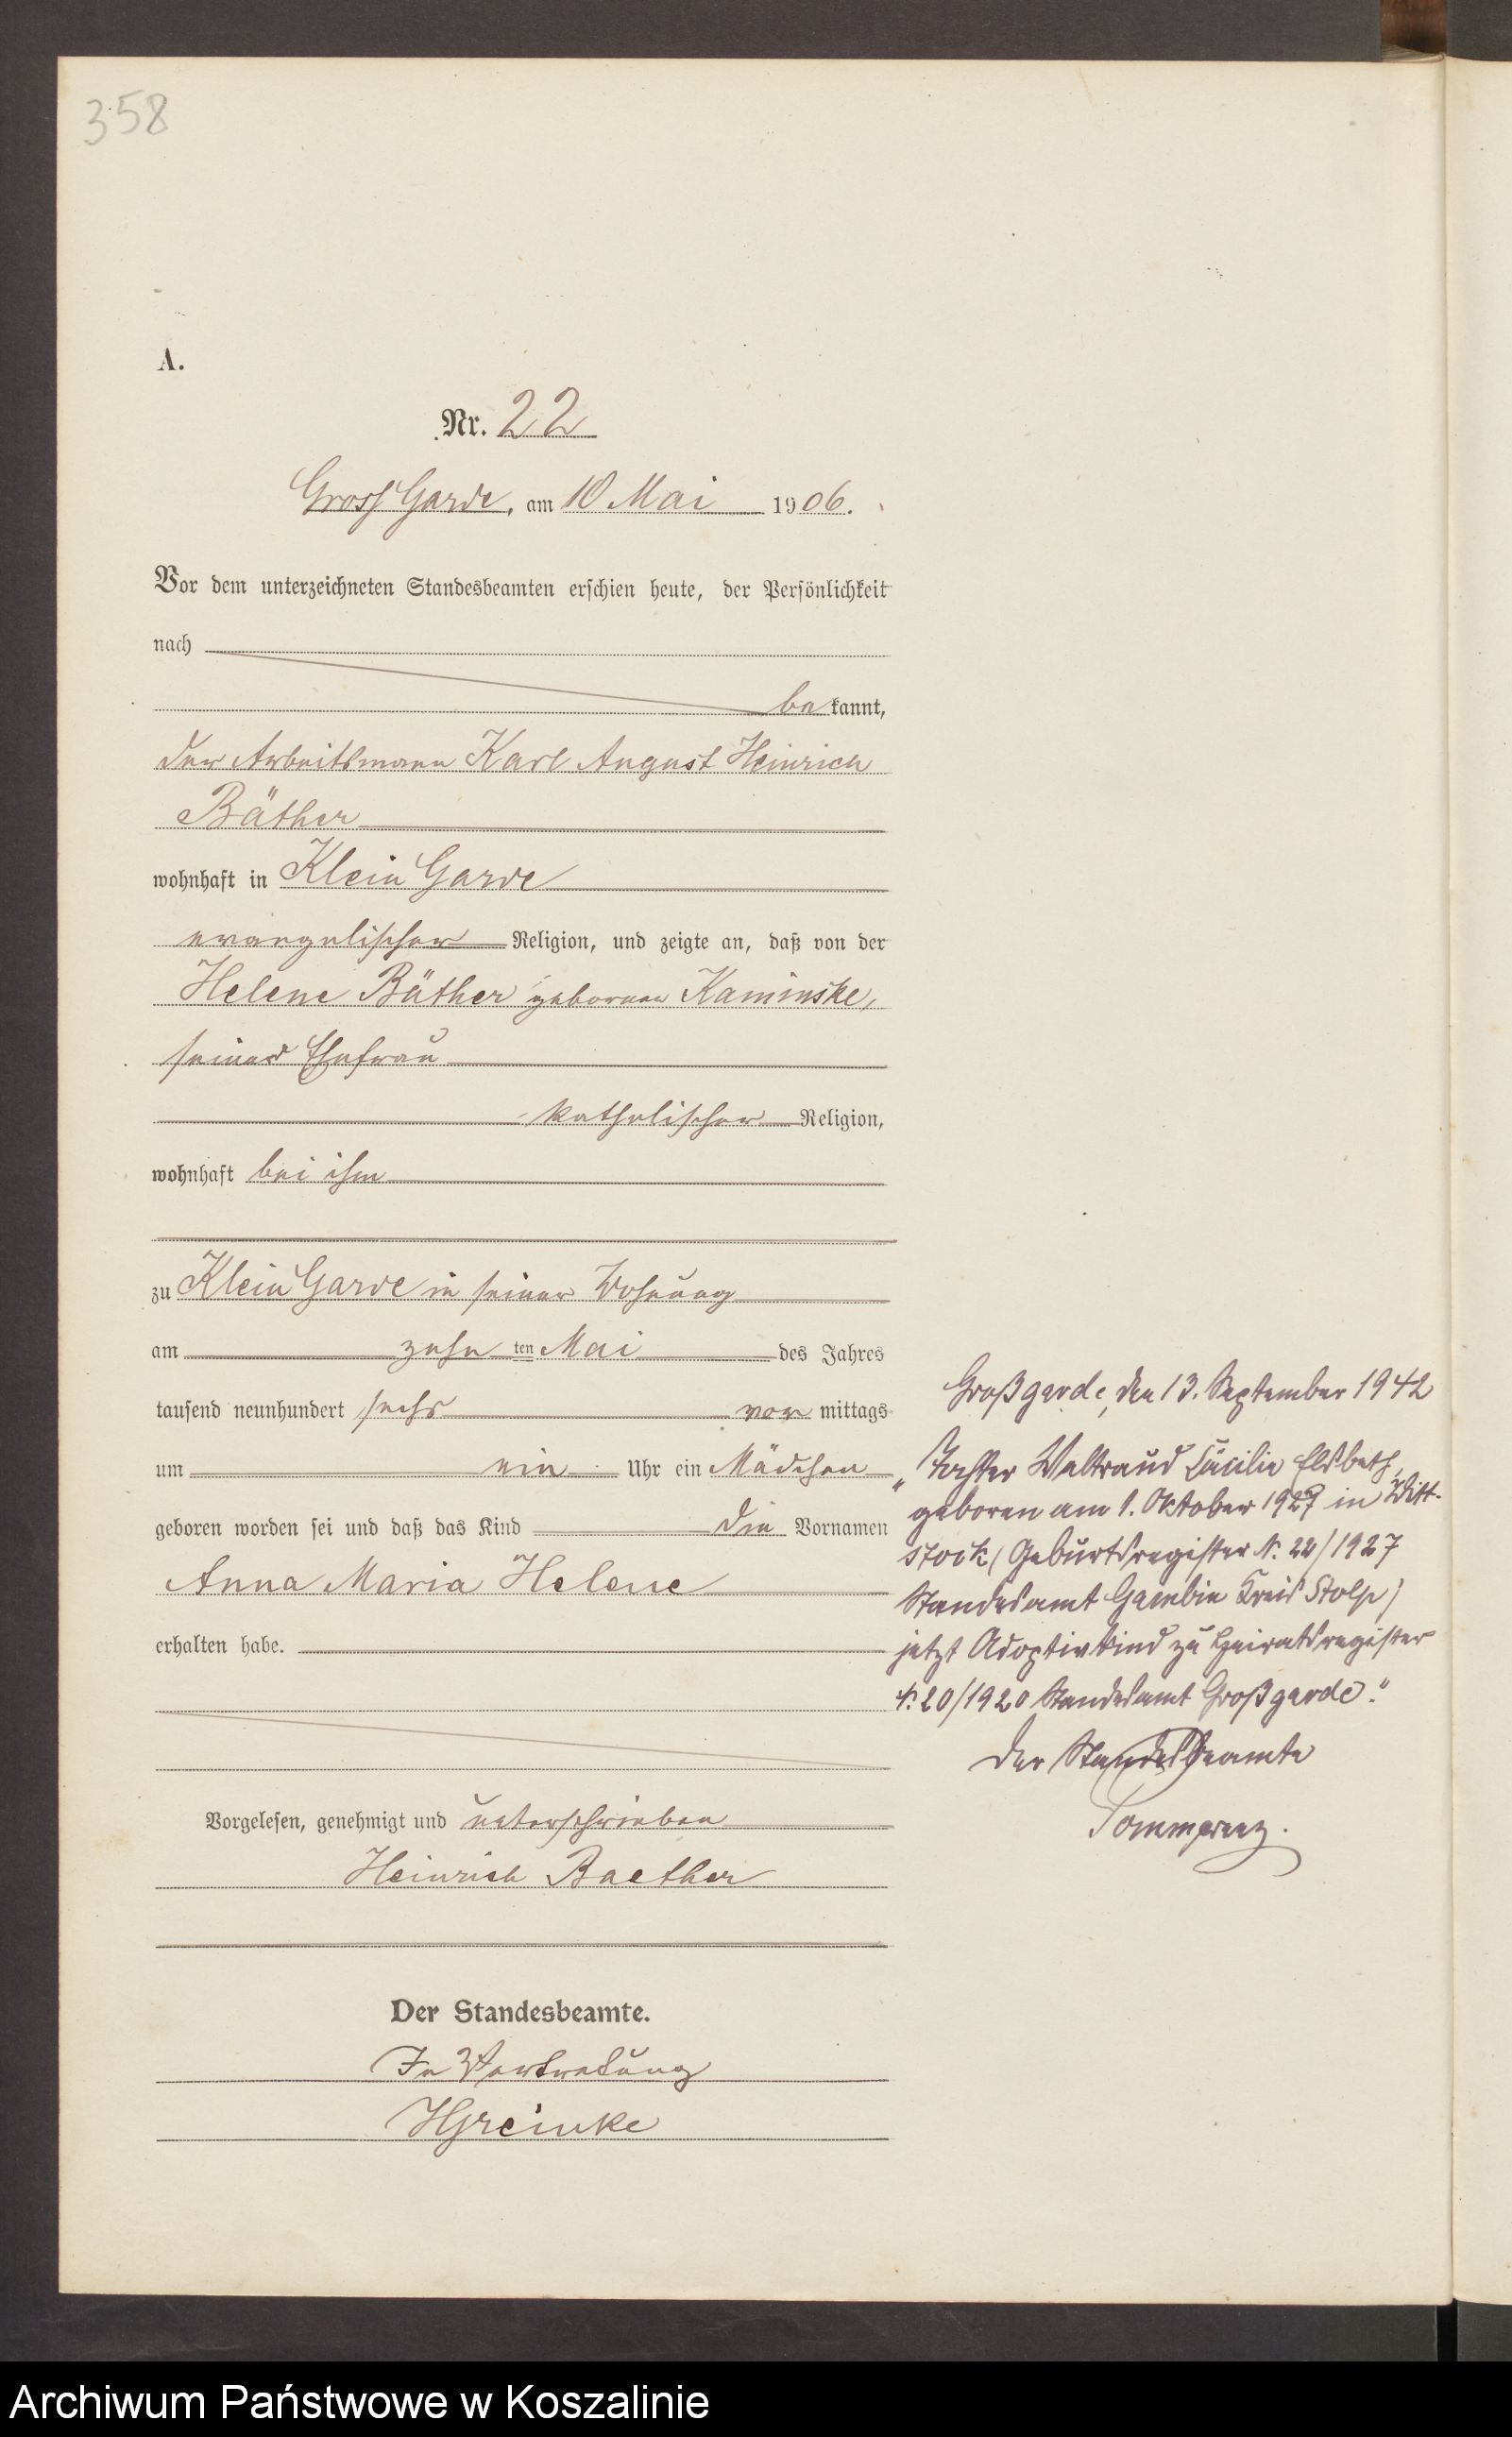 358
A.
Nr. 22
Gross Garde, am 10 Mai 1906.
Vor dem unterzeichneten Standesbeamten erschien heute, der Persönlichkeit
nach
bekannt,
der Arbeitsmann Karl August Heinrich
Bäther
wohnhaft in Klein Garde
evangelischer Religion, und zeigte an, daß von der
Helene Bäther geborenen Kaminske,
seiner Ehefrau
katholischer Religion,
wohnhaft bei ihm
zu Klein Garde in seiner Wohnung
am zehnten Mai des Jahres
tausend neunhundert sechs vormittags
um ein Uhr ein Mädchen
geboren worden sei und daß das Kind die Vornamen
Anna Maria Helene
erhalten habe.
Vorgelesen, genehmigt und unterschrieben
Heinrich Baether
Der Standesbeamte.
In Vertretung
Großgarde, den 13. September 1942
„Tochter Waltraud Cäcilie Elsbeth,
geboren am 1. Oktober 1927 in Witt-
stock (Geburtsregister N. 22/1927
Standesamt Gambin Kreis Stolp)
jetzt Adoptivkind zu Heiratsregister
N. 20/1920 Standesamt Großgarde."
Der Standesbeamte
Archiwum Państwowe w Koszalinie